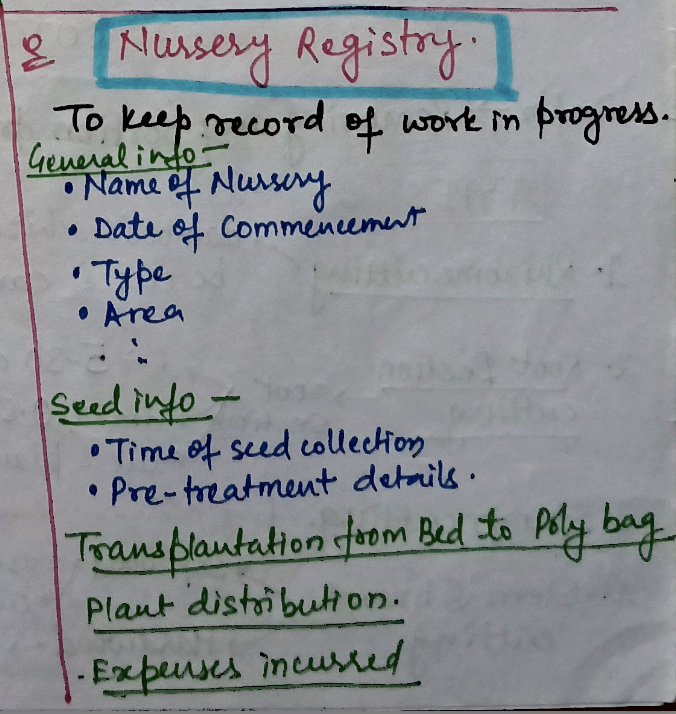 Nursery Registry.
To keep record of work in progress.
General info –
• Name of Nursery
• Date of Commencement
• Type
• Area
Seed info –
• Time of seed collection
• Pre-treatment details.
Transplantation from Bed to Poly bag
Plant distribution.
. Expenses incurred